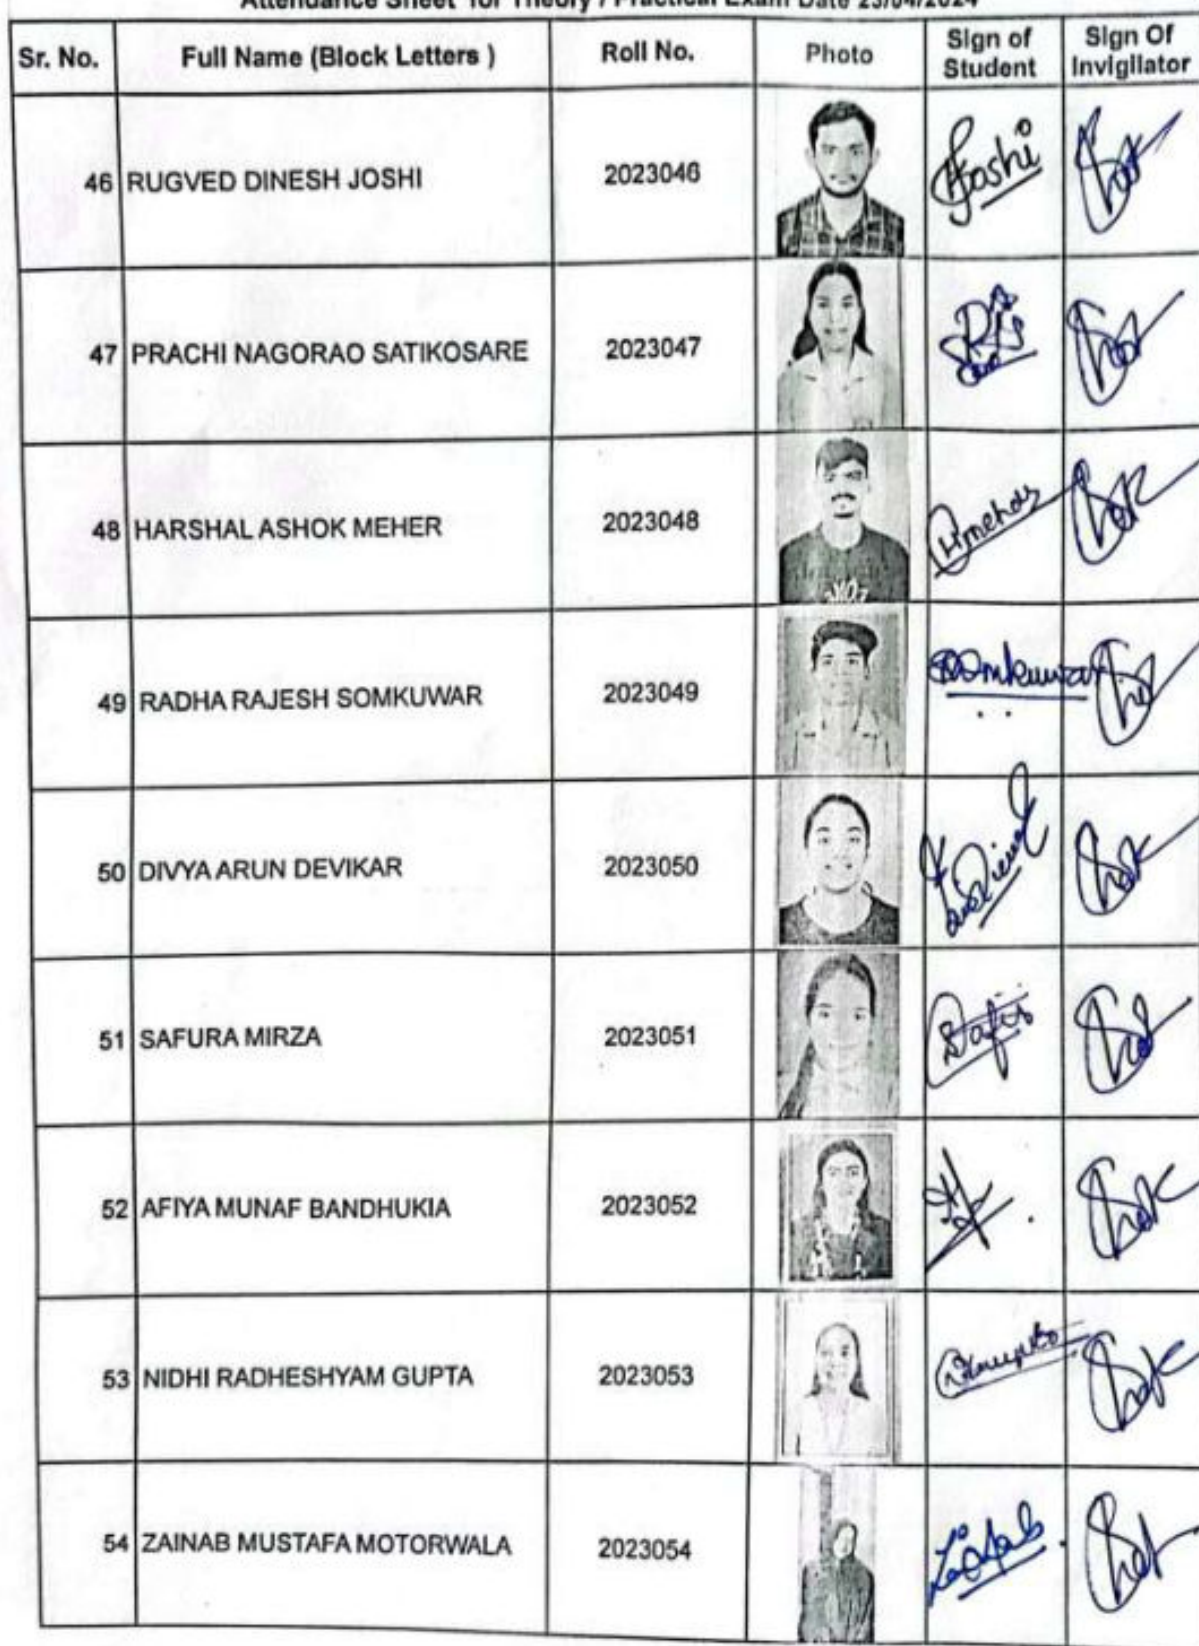 Attendance Sheet for Theory / Practical Exam Date 23/04/2024
Sr. No. Full Name (Block Letters ) Roll No. Photo Sign of Student Sign Of Invigilator
46 RUGVED DINESH JOSHI 2023046 Joshi
47 PRACHI NAGORAO SATIKOSARE 2023047
48 HARSHAL ASHOK MEHER 2023048
49 RADHA RAJESH SOMKUWAR 2023049 Somkuwar
50 DIVYA ARUN DEVIKAR 2023050
51 SAFURA MIRZA 2023051
52 AFIYA MUNAF BANDHUKIA 2023052
53 NIDHI RADHESHYAM GUPTA 2023053
54 ZAINAB MUSTAFA MOTORWALA 2023054 Zainab